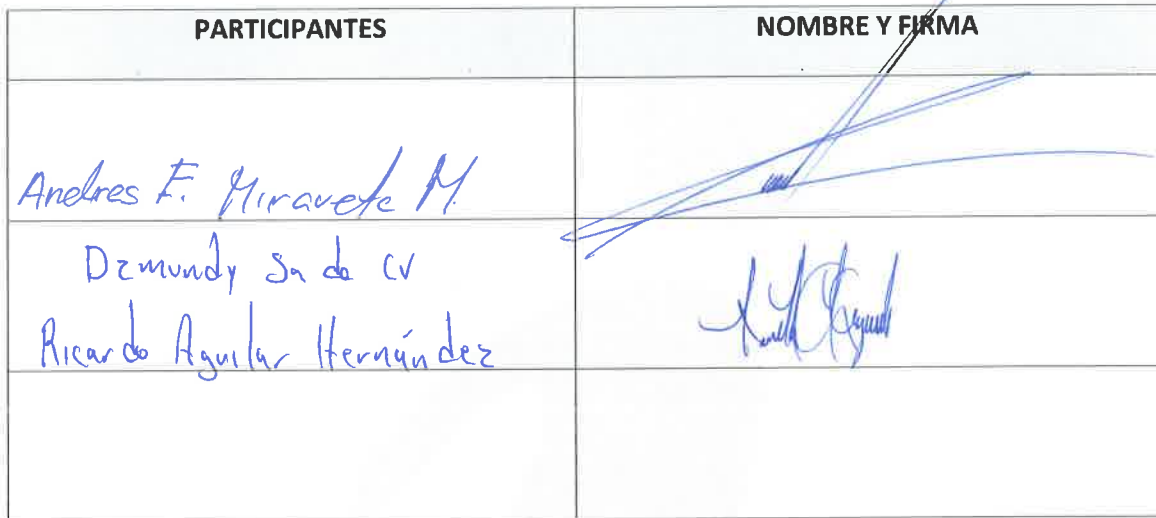 PARTICIPANTES
NOMBRE Y FIRMA
Andres F. Miravete M.
Dzmundy Sa de CV
Ricardo Aguilar Hernández